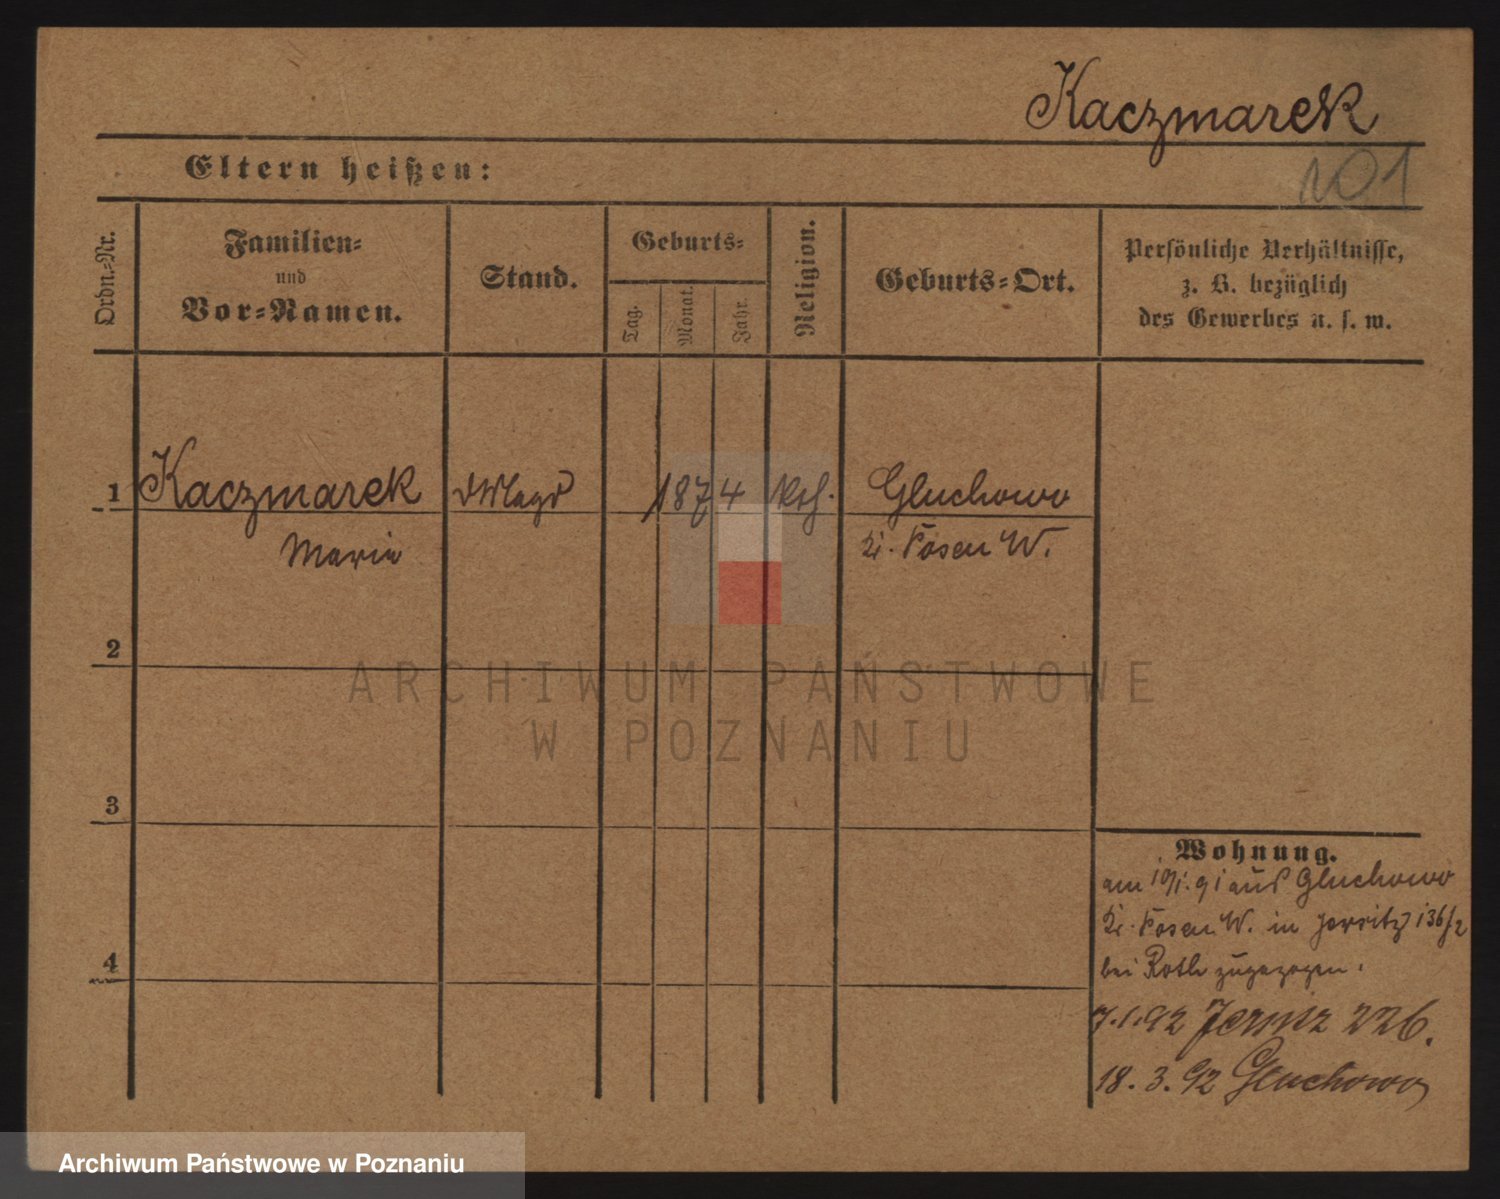 Kaczmarek
101
Eltern heißen:
Ordn.-Nr.
Familien-
und
Vor-Namen.
Stand.
Geburts-
Tag.
Monat.
Jahr.
Religion.
Geburts-Ort.
Persönliche Verhältnisse,
z. B. bezüglich
des Gewerbes u. s. w.
1 Kaczmarek 1874 Gluchowo
Marie Kr. Posen W.
2
3
4
Wohnung.
am 10/1.91 aus Gluchowo
Kr. Posen W. in Jersitz 136/2
bei Roth zugezogen.
7.1.92 Jersitz 226.
18.3.92 Gluchowo
ARCHIWUM PAŃSTWOWE
W POZNANIU
Archiwum Państwowe w Poznaniu